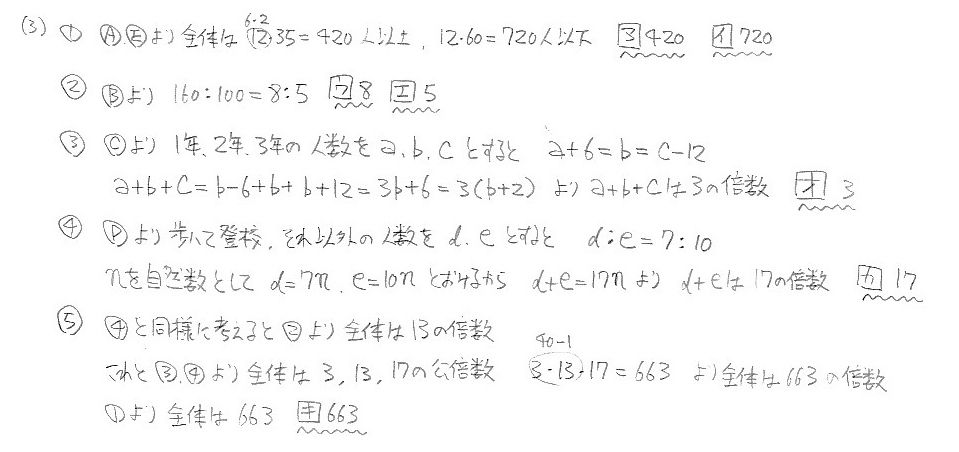 6・2
(3) ① Ⓐ,Ⓔより全体は 12・35=420人以上, 12・60=720人以下 ア 420 イ 720
② Ⓑより 160:100=8:5 ウ 8 エ 5
③ Ⓒより 1年、2年、3年の人数をa、b、cとすると a+6=b=c-12
a+b+c=b-6+b+b+12=3b+6=3(b+2) より a+b+cは3の倍数 オ 3
④ Ⓓより歩いて登校、それ以外の人数をd、eとすると d:e=7:10
nを自然数として d=7n、e=10nとおけるから d+e=17nより d+eは17の倍数 カ 17
⑤ ④と同様に考えると②より全体は13の倍数
40-1
これと③,④より全体は3,13,17の公倍数 3・13・17=663 より全体は663の倍数
①より全体は663 キ 663